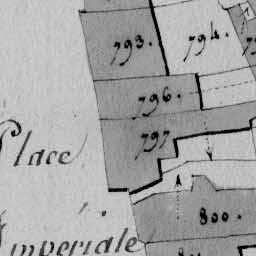 793.
794.
796.
797
Place
800.
Imperiale